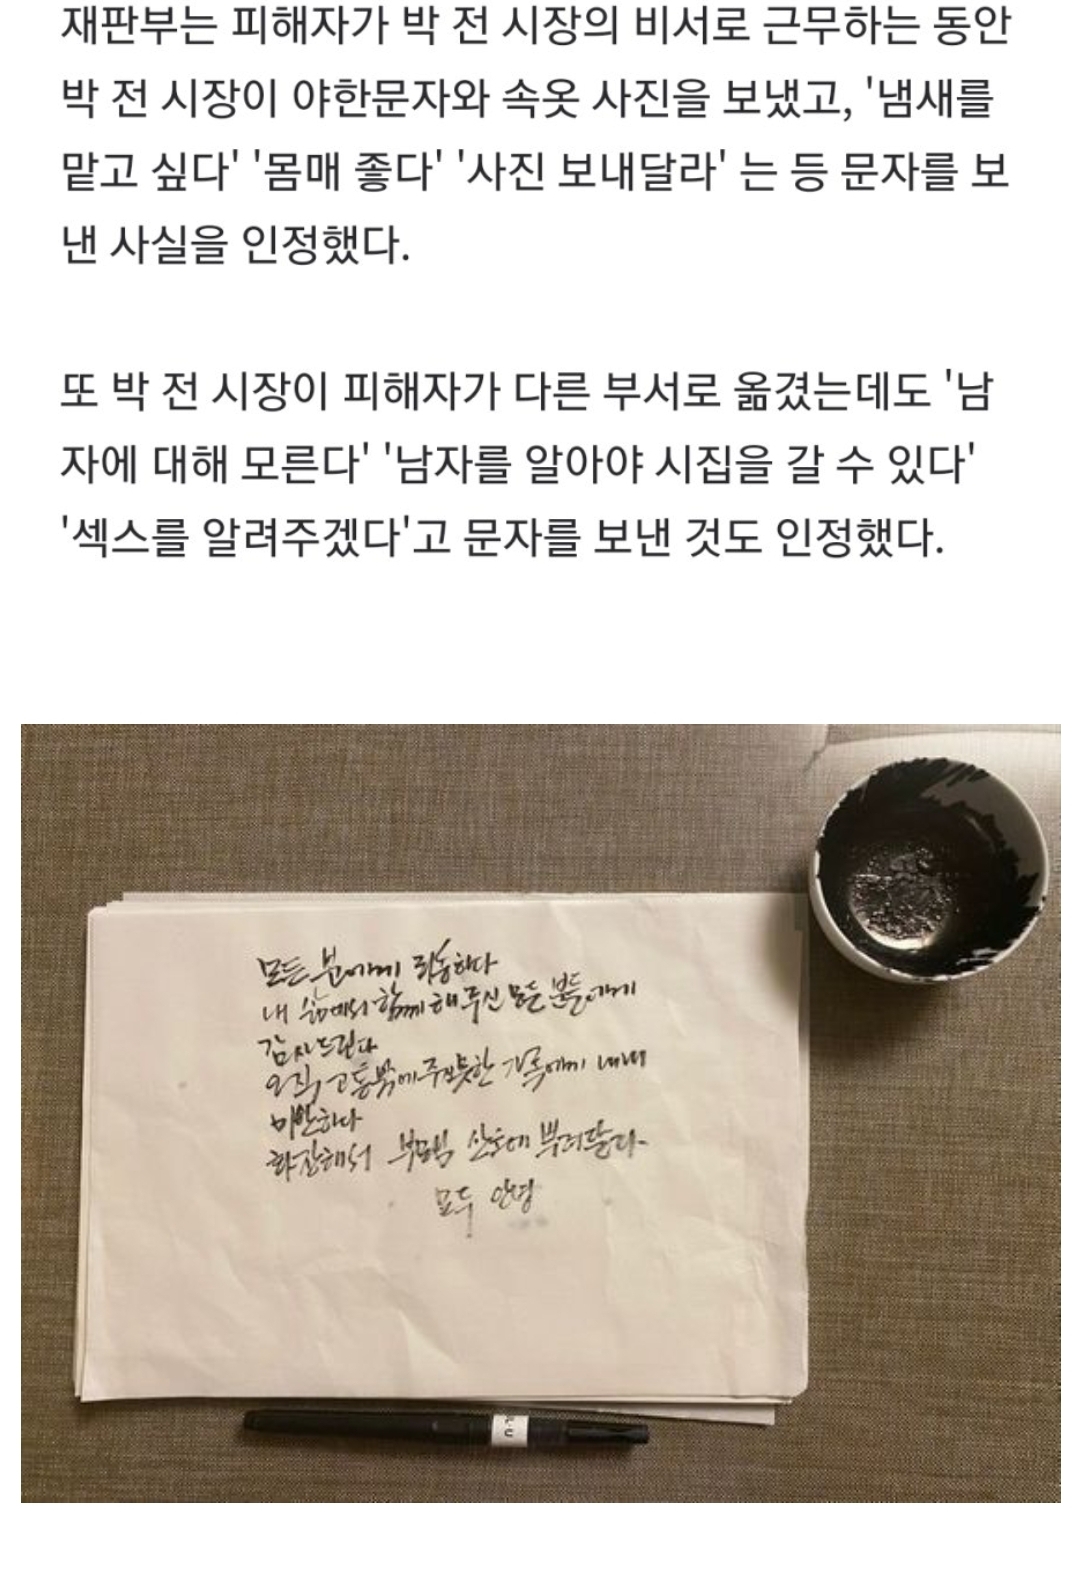 재판부는 피해자가 박 전 시장의 비서로 근무하는 동안
박 전 시장이 야한문자와 속옷 사진을 보냈고, '냄새를
맡고 싶다' '몸매 좋다' '사진 보내달라' 는 등 문자를 보
낸 사실을 인정했다.
또 박 전 시장이 피해자가 다른 부서로 옮겼는데도 '남
자에 대해 모른다' '남자를 알아야 시집을 갈 수 있다'
'섹스를 알려주겠다'고 문자를 보낸 것도 인정했다.
모든 분에게 죄송하다
내 삶에서 함께 해주신 모든 분들에게
감사드린다
오직, 고통밖에 주지 못한 가족에게 내내
미안하다
화장해서 부모님 산소에 뿌려달라
모두 안녕